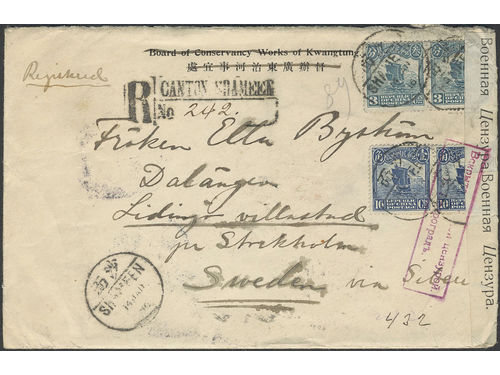 Board of Conservancy Works of Kwangtung.
督辦廣東治河事宜處
Registered
R
CANTON SHAMEEN
No 242.
Fröken Elta Byström
Dalängen
Lidingö villastad
pr Stockholm
Sweden via Siberia
432
SHAMEEN
3 3
10 10
Военная Цензура. Военная Цензура.